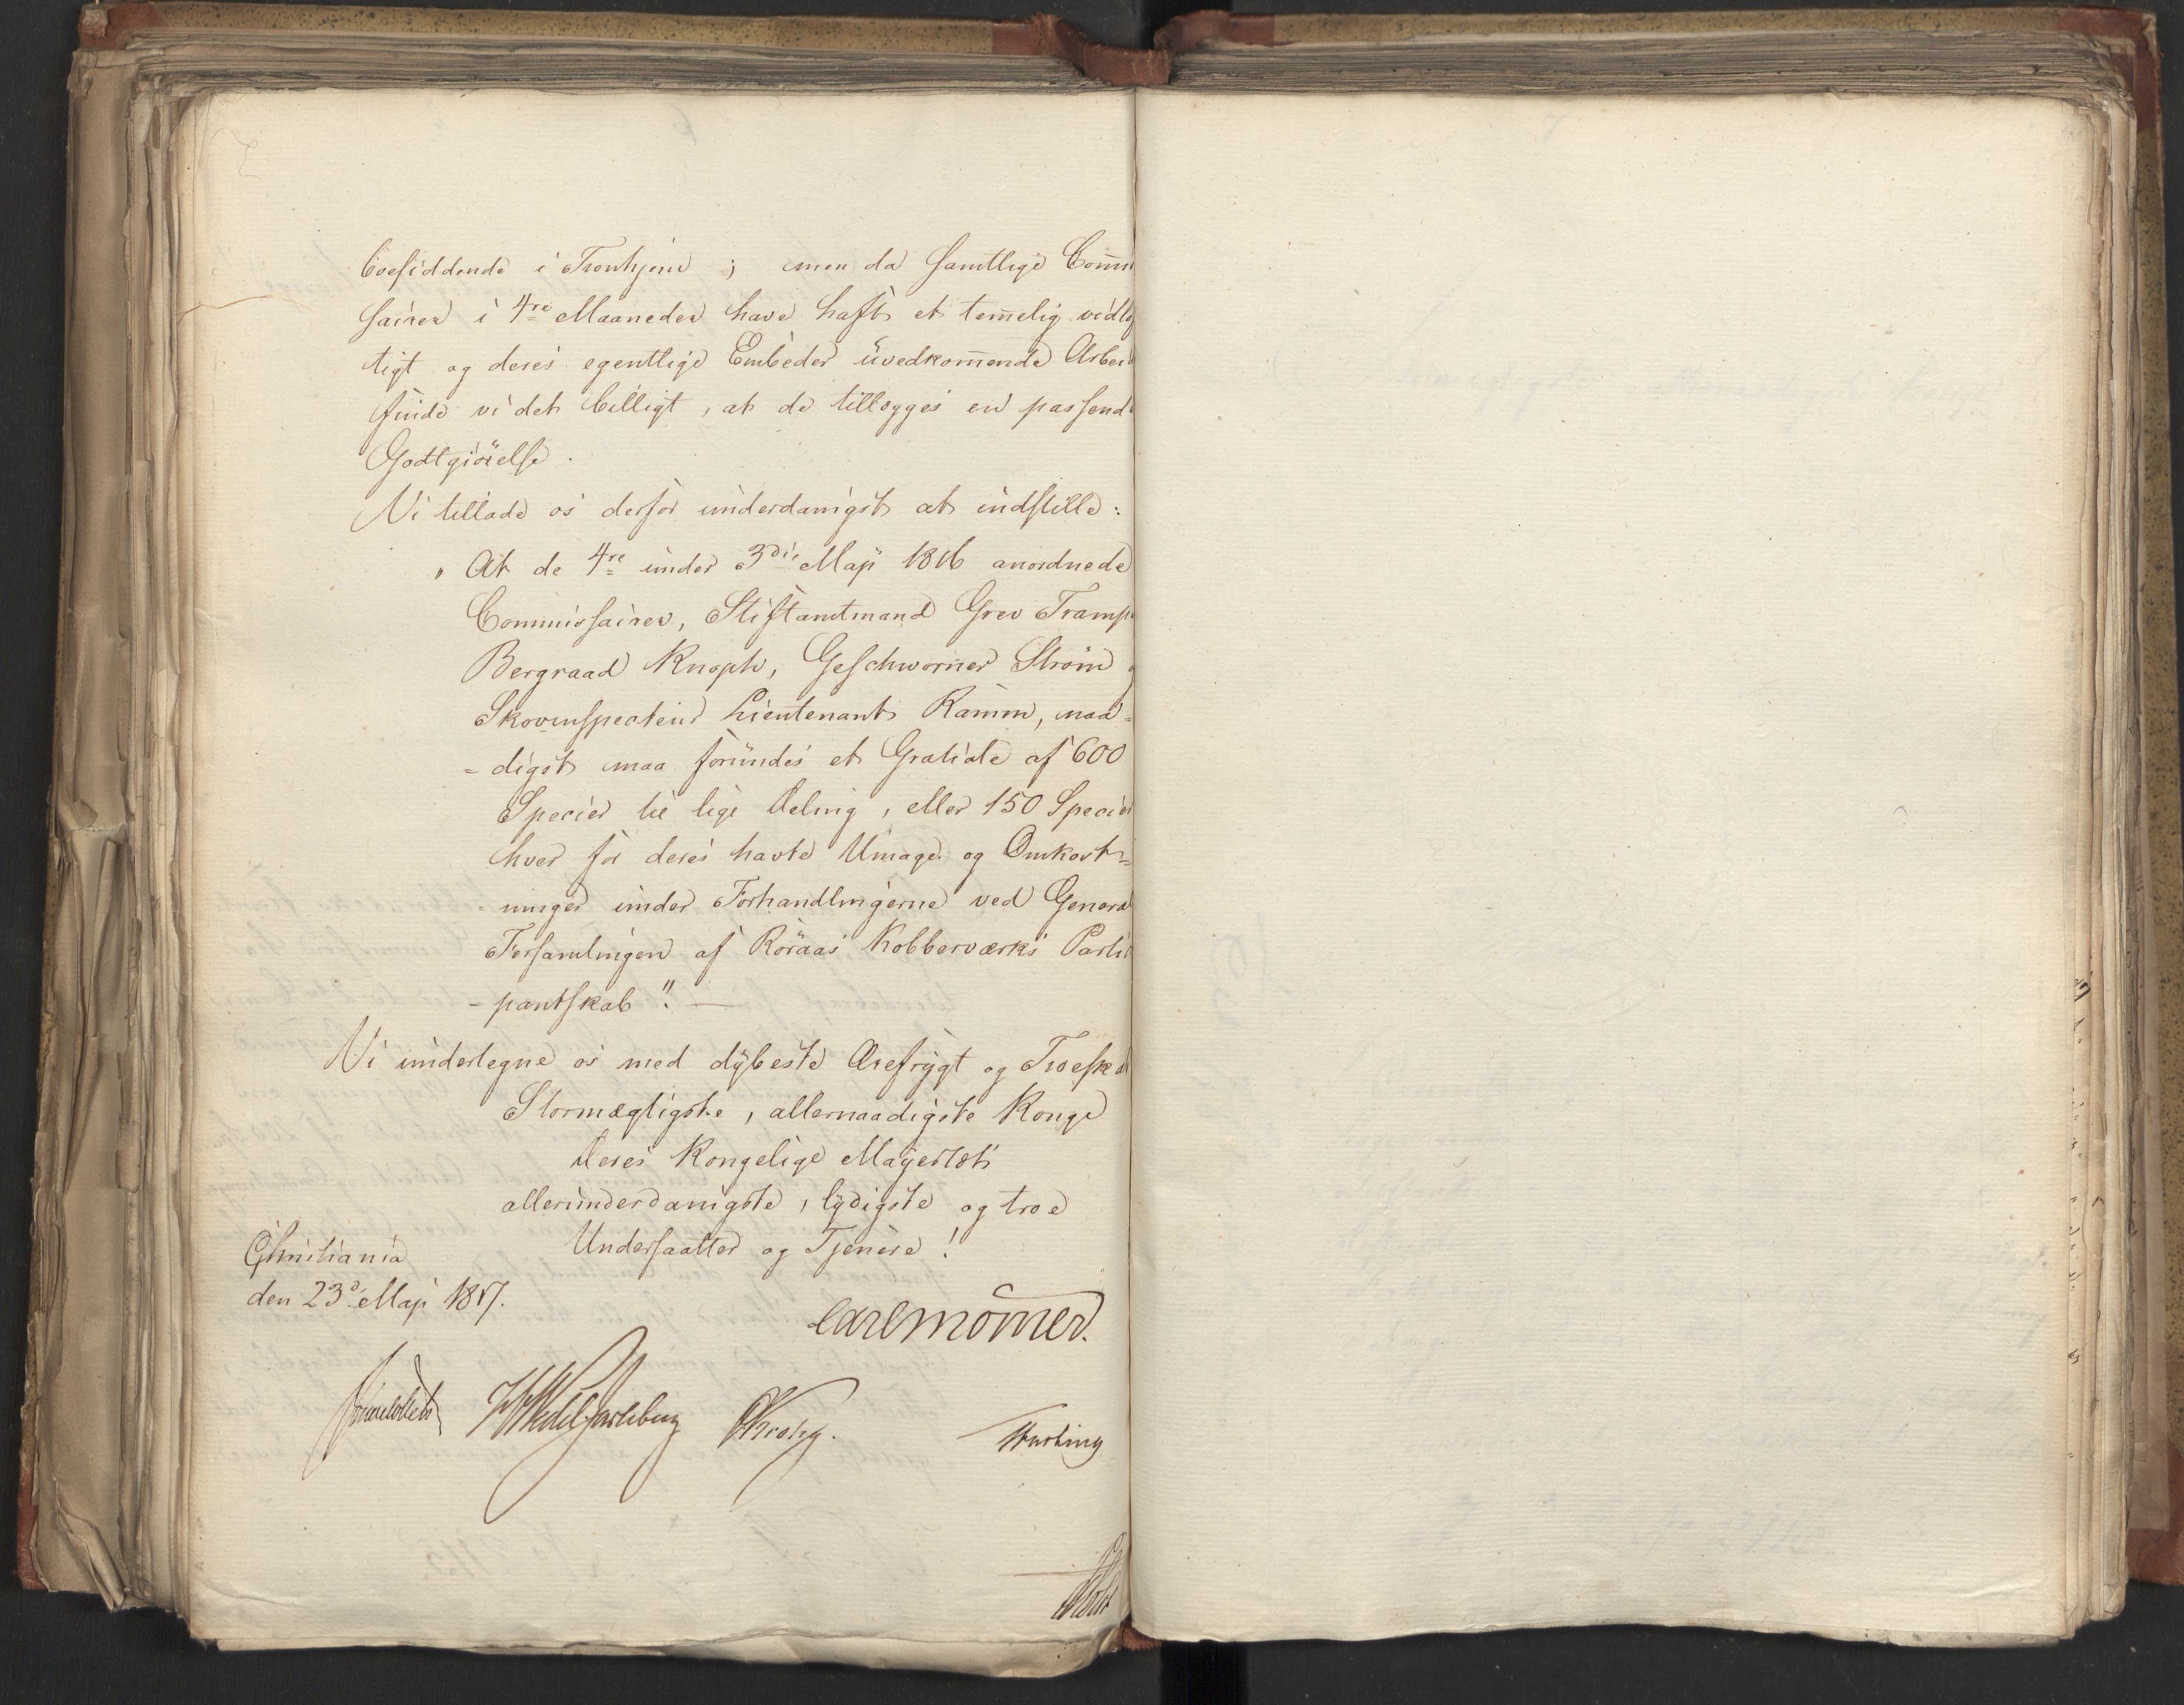 boesiddende i Tronhjem ; men da samtlige Comm
sairer i 4re Maaneder have haft et temelig vidtlø
tigt og deres egentlige Embeder uvedkommende Arbei
finde vi det billigt, at de tillægges en passend
Godtgiörelse.
Vi tillade os derfor underdanigst at indstille:
"At de 4re under 3die Maji 1816 anordnede
Commissairer, Stiftamtmand Grev Tramp
Bergraad Knoph, Geschworner Ström
Skovinspecteur Lieutenant Ramm, naa-
-digst maa forundes et Gratiale af 600
Species til lige Deling, eller 150 Specie
hver for deres havte Umage og Omkost-
-ninger under Forhandlingerne ved General
Forsamlingen af Röraas Kobberværks Parti
-pantskab". —
Vi undertegne os med dÿbeste Ærefrÿgt og Troesk
Stormægtigste, allernaadigste Konge
Deres Kongelige Majestæts
allerunderdanigste, lÿdigste og troe
Undersaatter og Tjenere!
Christiania
den 23de Maji 1817.
Carl Mörner.
Jonas Collett HWedel Jarlsberg CKrohg. Motzfeldt
Holst